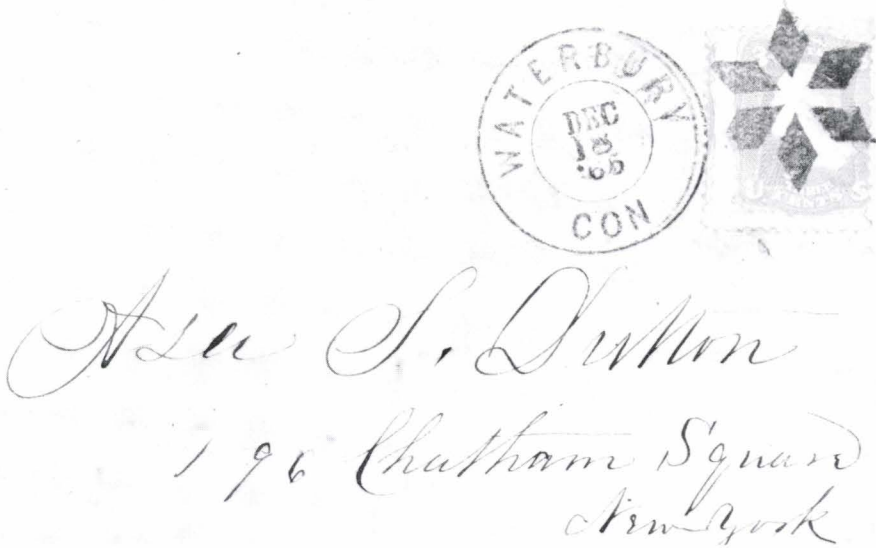 WATERBURY
DEC
18
'65
CON
U. CENTS S
Asa S. Dutton
196 Chatham Square
New York